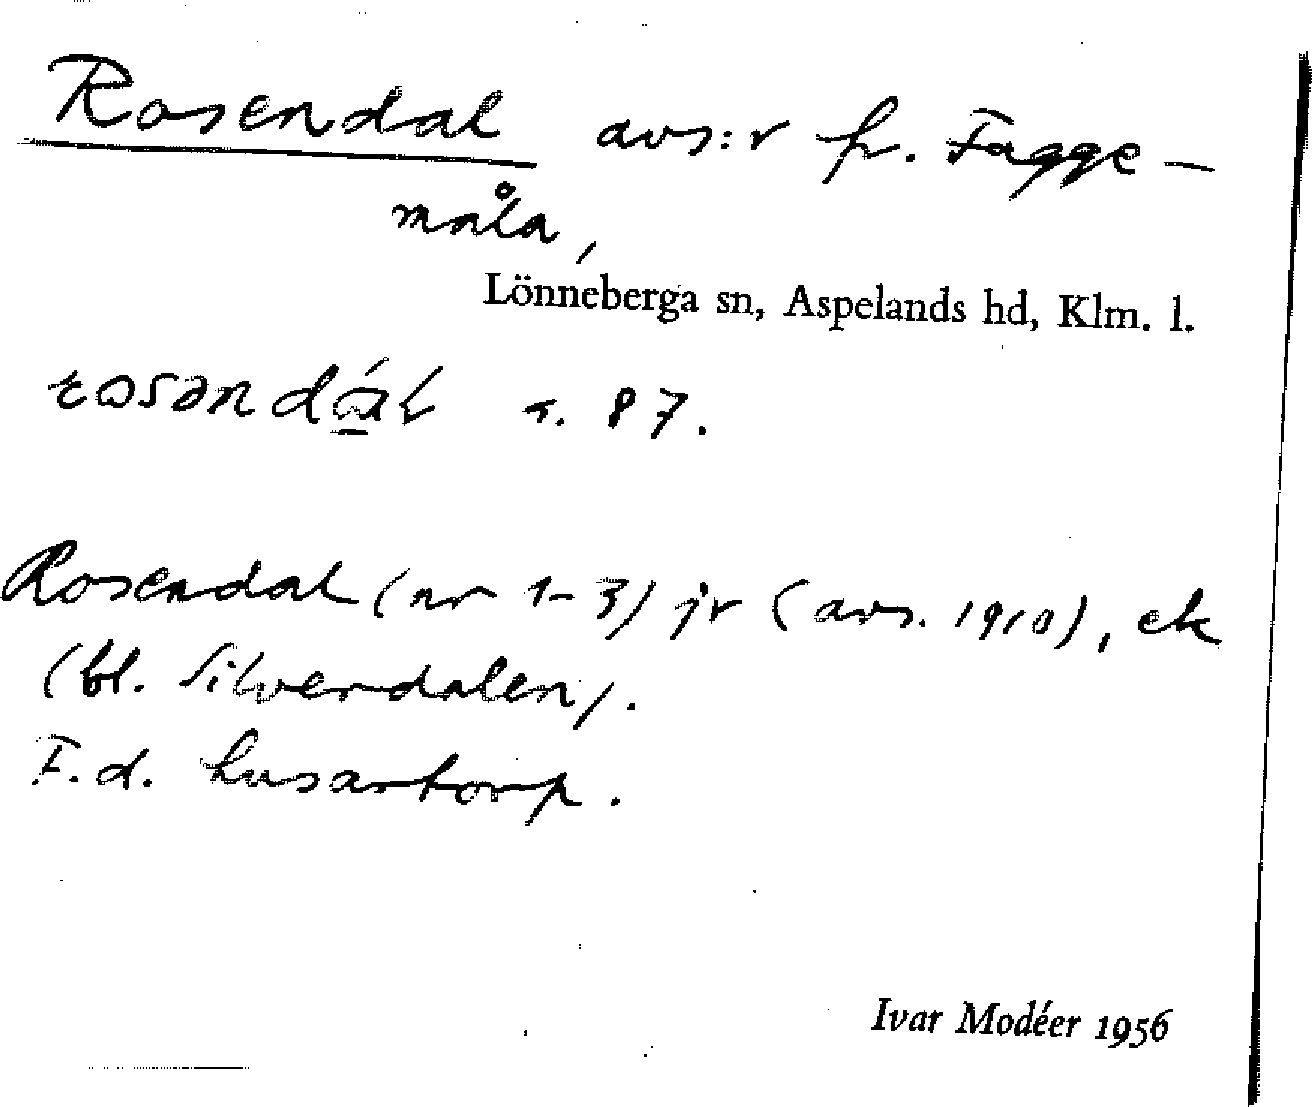 Rosendal avs:r fr. Fagge-
måla,
Lönneberga sn, Aspelands hd, Klm. l.
87.
Rosendal (nr 1-3) jr (avs. 1910), ek
(bl. Silverdalen).
F.d. husartorp.
Ivar Modéer 1956